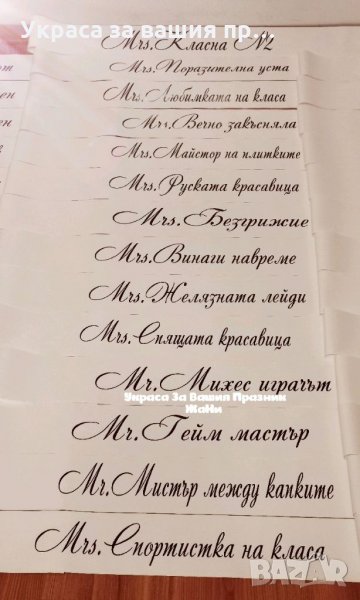 Украса за вашия пр...
Mrs. Класна N2
Mrs. Поразителна уста
Mrs. Любимката на класа
Mrs. Вечно закъсняла
Mrs. Майстор на плитките
Mrs. Руската красавица
Mrs. Безгрижие
Mrs. Винаги навреме
Mrs. Желязната лейди
Mrs. Спящата красавица
Mr. Михес играчът
Украса За Вашия Празник
ЖаНи
Mr. Гейм мастър
Mr. Мистър между канките
Mrs. Спортистка на класа
BAZAR